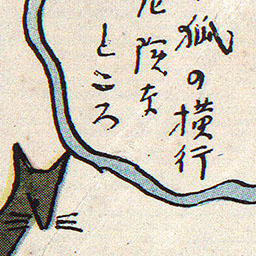 狐の横行
危険な
ところ